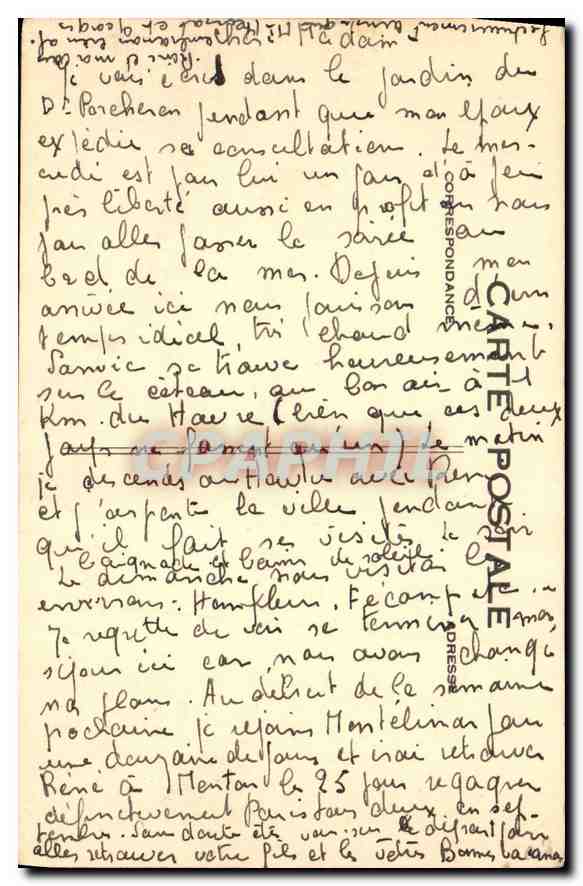 Madame
Je vous écris dans le jardin du
Dr Porcheron pendant que mon époux
expédie sa consultation. Le mer-
credi est pour lui un jour à peu
près liberté aussi en profitons nous
pour aller passer la soirée au
bord de la mer. Depuis mon
arrivée ici nous jouissons d'un
temps idéal, très chaud même.
Sanvic se trouve heureusement
sur le côteau, au bon air à 1
Km. du Havre (bien que ces deux
pays ne fassent qu'un) Le matin
je descends au Havre avec
et j'arpente la ville pendant
qu'il fait ses visites le soir
baignade et bains de soleil
Le dimanche nous visitons les
environs : Honfleur, Fécamp etc
Je regrette de voir se terminer mon
séjour ici car nous avons changé
nos plans. Au début de la semaine
prochaine je rejoins Montélimar pour
une douzaine de jours et irai retrouver
René à Menton le 25 pour regagner
définitivement Paris tous deux en sep-
tembre. Sans doute êtes vous sur le départ pour
aller retrouver votre fils et les vôtres Bonnes vacances
CARTE POSTALE
CORRESPONDANCE
ADRESSE
CPAPHIL